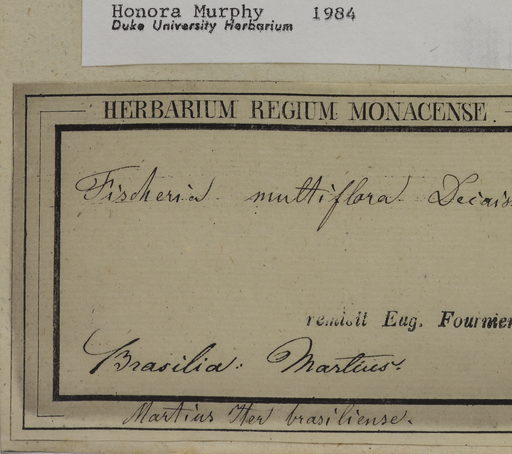 Honora Murphy 1984
Duke University Herbarium
HERBARIUM REGIUM MONACENSE.
Fischeria multiflora Decais
remisit Eug. Fournier
Brasilia. Martius.
Martius Iter brasiliense.